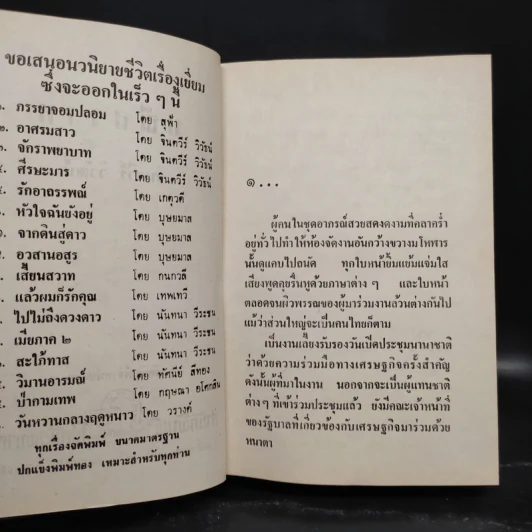 ขอเสนอนวนิยายชีวิตเรื่องเยี่ยม
ซึ่งจะออกในเร็ว ๆ นี้
๑. ภรรยาจอมปลอม โดย สุฟ้า
๒. อาศรมสาว โดย จินตวีร์ วิวัธน์
๓. จักราพยาบาท โดย จินตวีร์ วิวัธน์
๔. ศีรษะมาร โดย จินตวีร์ วิวัธน์
๕. รักอาถรรพณ์ โดย เกตุวดี
หัวใจฉันยังอยู่ โดย บุษยมาส
จากดินสู่ดาว โดย บุษยมาส
อวสานอสูร โดย บุษยมาส
เสี้ยนสวาท โดย กนกวลี
แล้วผมก็รักคุณ โดย เทพเทวี
ไปไม่ถึงดวงดาว โดย นันทนา วีระชน
เมียภาค ๒ โดย นันทนา วีระชน
สะใภ้ทาส โดย นันทนา วีระชน
วิมานอารมณ์ โดย ทัศนีย์ สีทอง
บำกามเทพ โดย กฤษณา อโศกสิน
วันหวานกลางฤดูหนาว โดย วรางค์
ทุกเรื่องจัดพิมพ์ ขนาดมาตรฐาน
ปกแข็งพิมพ์ทอง เหมาะสำหรับทุกท่าน
๑...
ผู้คนในชุดอาภรณ์สวยสดงดงามที่คลาคร่ำ
อยู่ทั่วไปทำให้ห้องจัดงานอันกว้างขวางมโหฬาร
นั้นดูแคบไปถนัด ทุกใบหน้ายิ้มแย้มแจ่มใส
เสียงพูดคุยรื่นหูด้วยภาษาต่าง ๆ และใบหน้า
ตลอดจนผิวพรรณของผู้มาร่วมงานล้วนต่างกันไป
แม้ว่าส่วนใหญ่จะเป็นคนไทยก็ตาม
เป็นงานเลี้ยงรับรองวันเปิดประชุมนานาชาติ
ว่าด้วยความร่วมมือทางเศรษฐกิจครั้งสำคัญ
ดังนั้นผู้ที่มาในงาน นอกจากจะเป็นผู้แทนชาติ
ต่างๆ ที่เข้าร่วมประชุมแล้ว ยังมีคณะเจ้าหน้าที่
ของรัฐบาลที่เกี่ยวข้องกับเศรษฐกิจมาร่วมด้วย
หนาตา